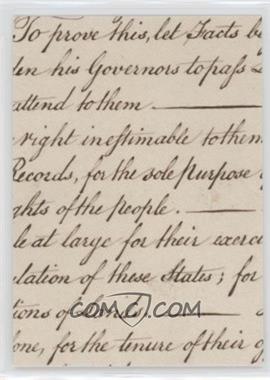 To prove this, let Facts b
den his Governors to pass
attend to them
right inestimable to them
Records, for the sole purpose
ghts of the people.
le at large for their exerci
ulation of these States; for
tions of Lands.
one, for the tenure of their o
COMC